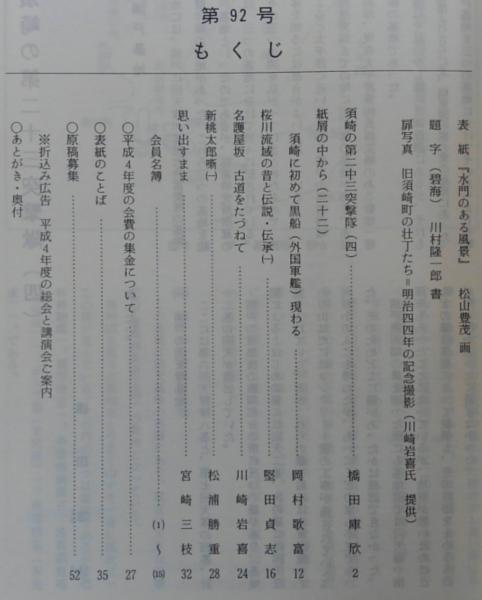 第92号
もくじ
表紙『水門のある風景』 松山豊茂 画
題字(碧海) 川村隆一郎 書
扉写真 旧須崎町の壮丁たち=明治四四年の記念撮影(川崎岩喜氏 提供)
須崎の第二十三突撃隊(四)……橋田庫欣 2
紙屑の中から(二十二)
須崎に初めて黒船(外国軍艦)現わる……岡村歌富 12
桜川流域の昔と伝説・伝承㈠……堅田貞志 16
名護屋坂 古道をたづねて……川崎岩喜 24
新桃太郎噺㈠……松浦勝重 28
思い出すまま……宮崎三枝 32
会員名簿……(1)~(15)
○平成4年度の会費の集金について……27
○表紙のことば……35
○原稿募集……52
※折込み広告 平成4年度の総会と講演会ご案内
○あとがき・奥付